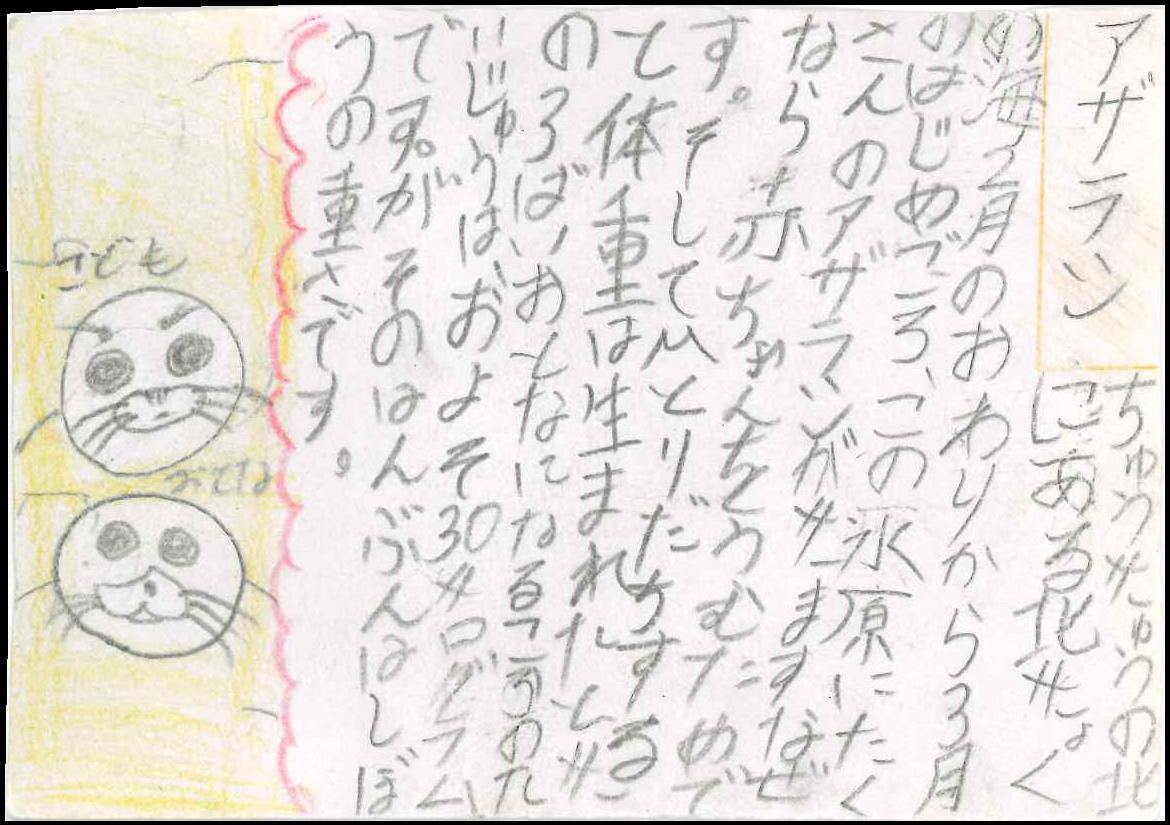 アザラシ
ちゅうきゅうの北
にある北きょく
の海2月のおわりから3月
のはじめごろ、この氷原にたく
さんのアザラシがきますなぜ
なら赤ちゃんをうむためで
す。そしてひとりだちする
と体重は生まれたとき
のろばいおとなになるころのた
いじゅうは、およそ30キログラム
ですがそのはんぶんはしぼ
うの重さです。
子ども
おとな